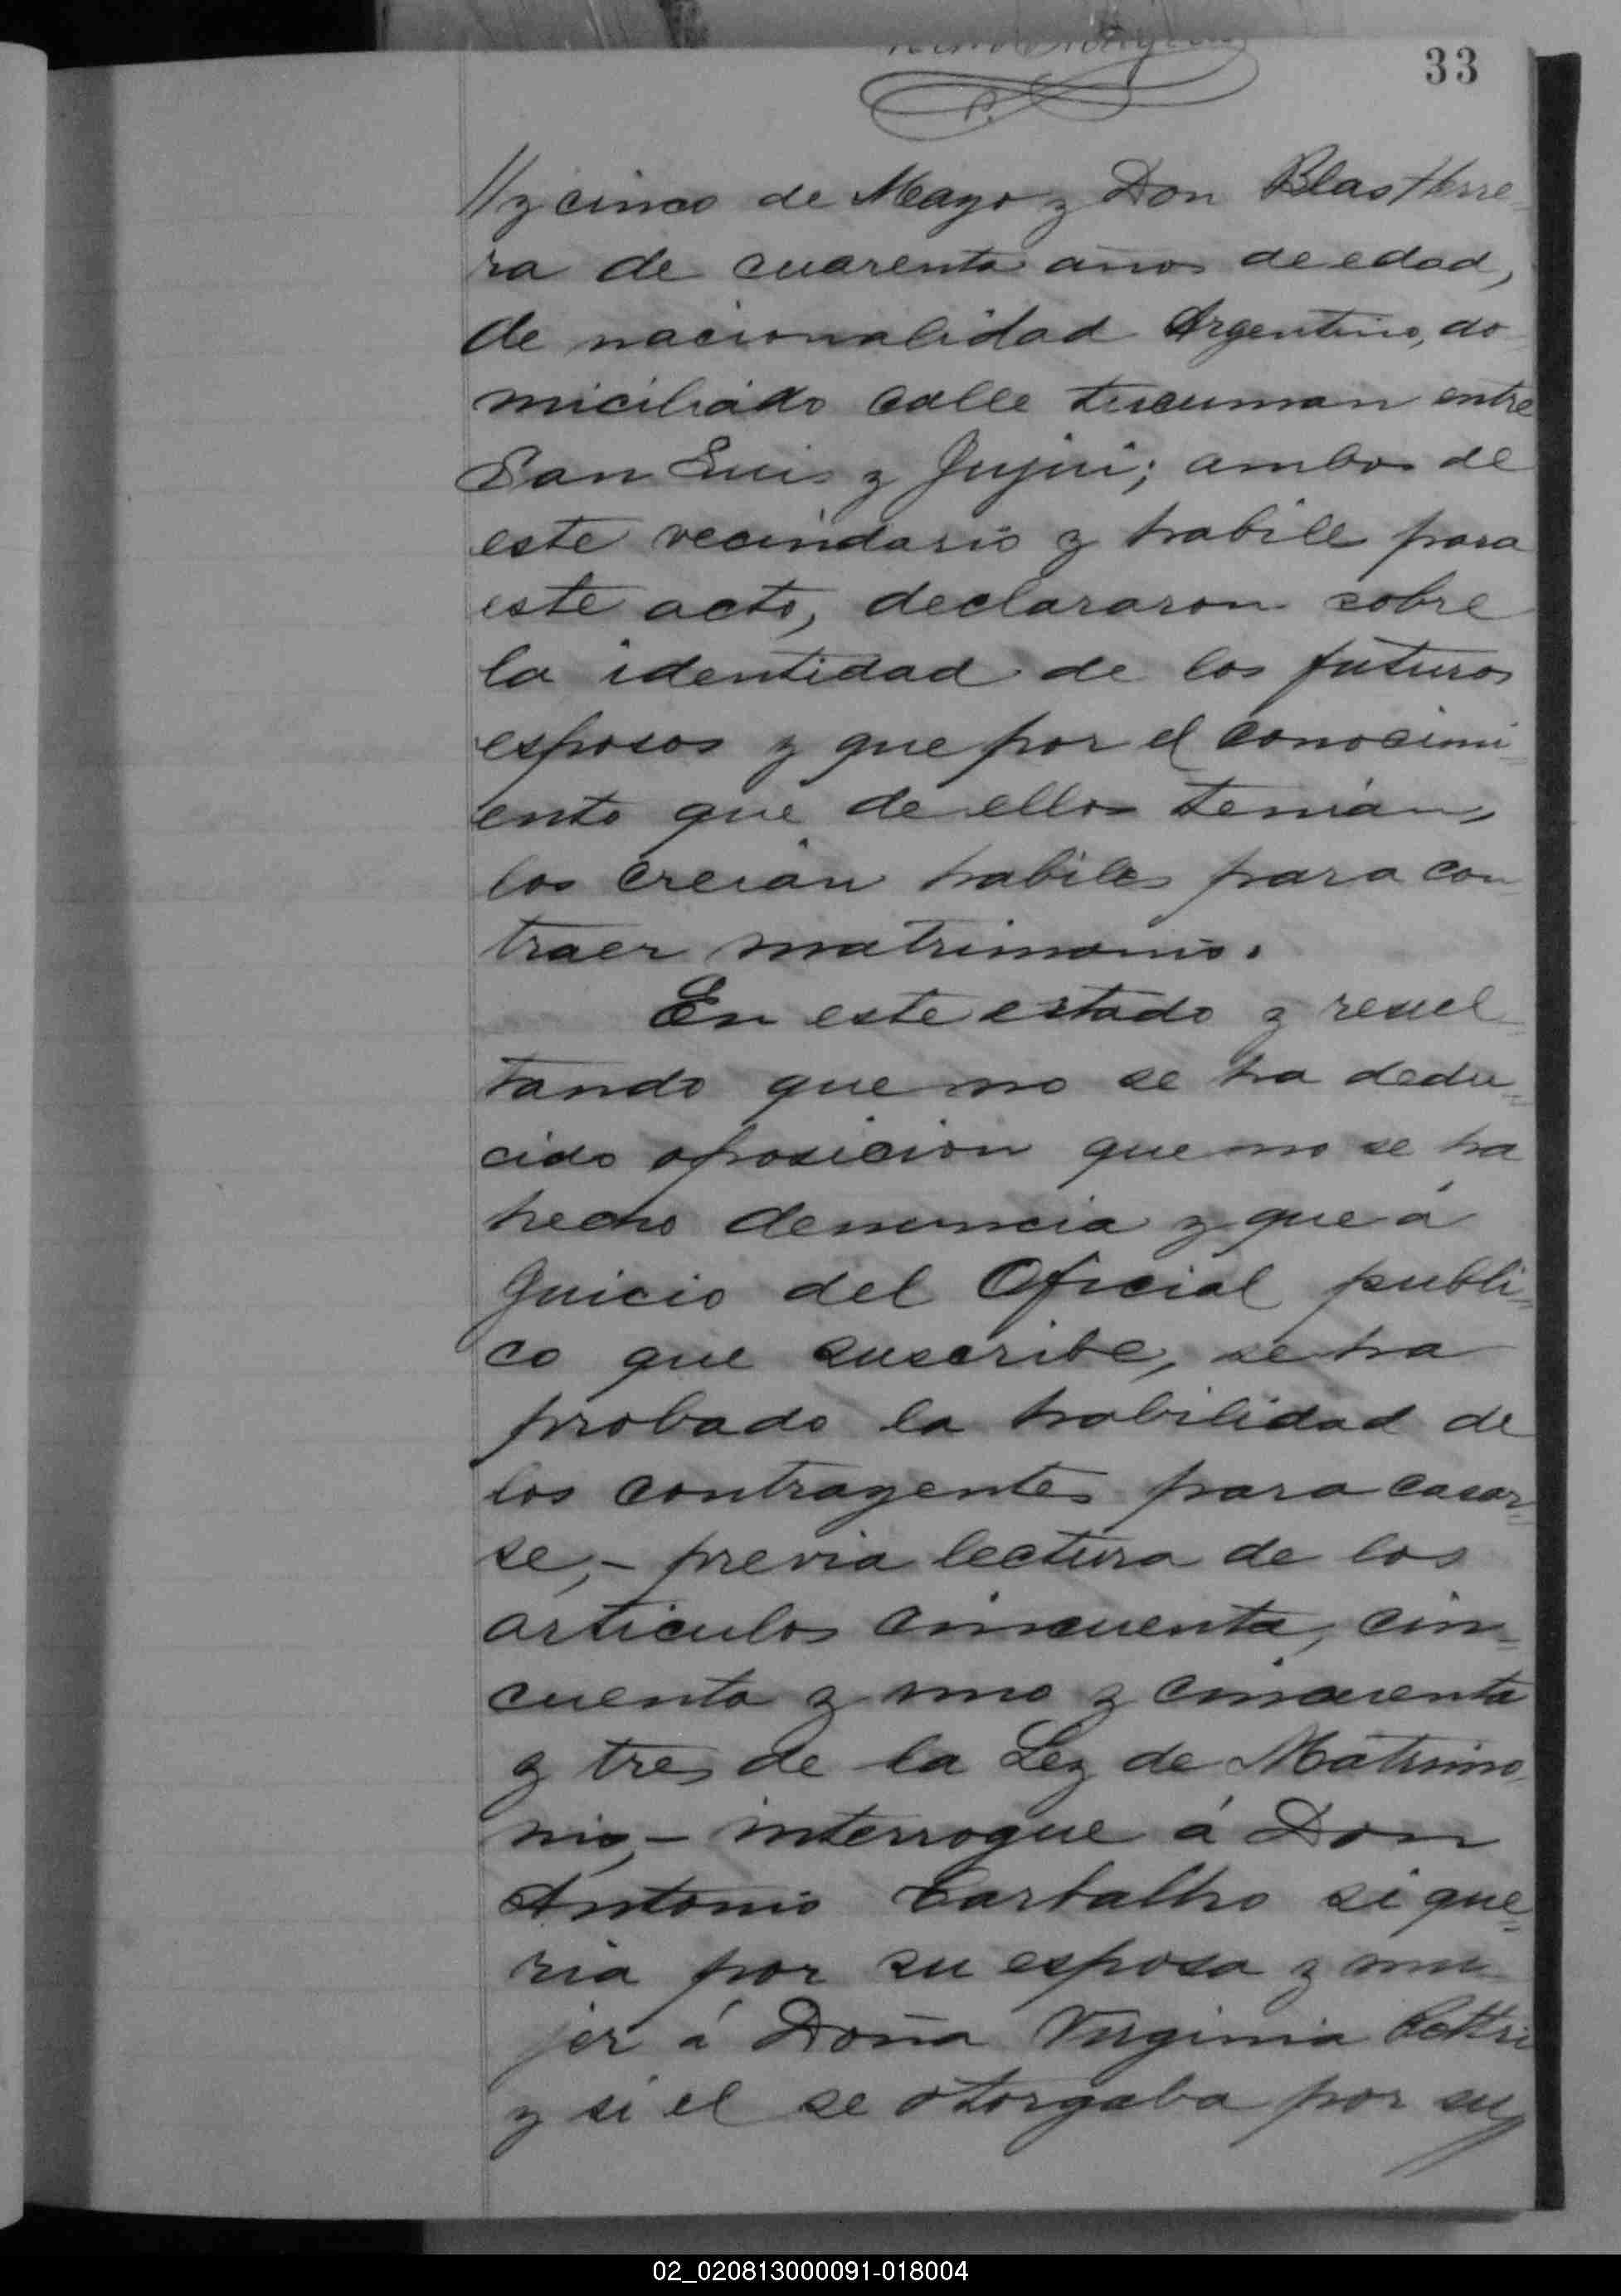 33
//y cinco de Mayo y Don Blas Herre-
ra de cuarenta años de edad,
de nacionalidad Argentino, do-
miciliado calle tucuman entre
San Luis y Jujui; ambos de
este vecindario y habiles para
este acto, declararon sobre
la identidad de los futuros
esposos y que por el conocimi-
ento que de ellos tenían,
los creían habiles para con-
traer matrimonio.
En este estado y resul-
tando que no se ha dedu-
cido oposicion que no se ha
hecho denuncia y que á
Juicio del Oficial publi-
co que suscribe, se ha
probado la habilidad de
los contrayentes para casar-
se,- previa lectura de los
articulos cincuenta, cin-
cuenta y uno y cincuenta
y tres de la Ley de Matrimo-
nio,- interrogue á Don
Antonio Carbalho si que-
ria por su esposa y mu-
jer á Doña Virginia
y si el se otorgaba por su
02_020813000091-018004